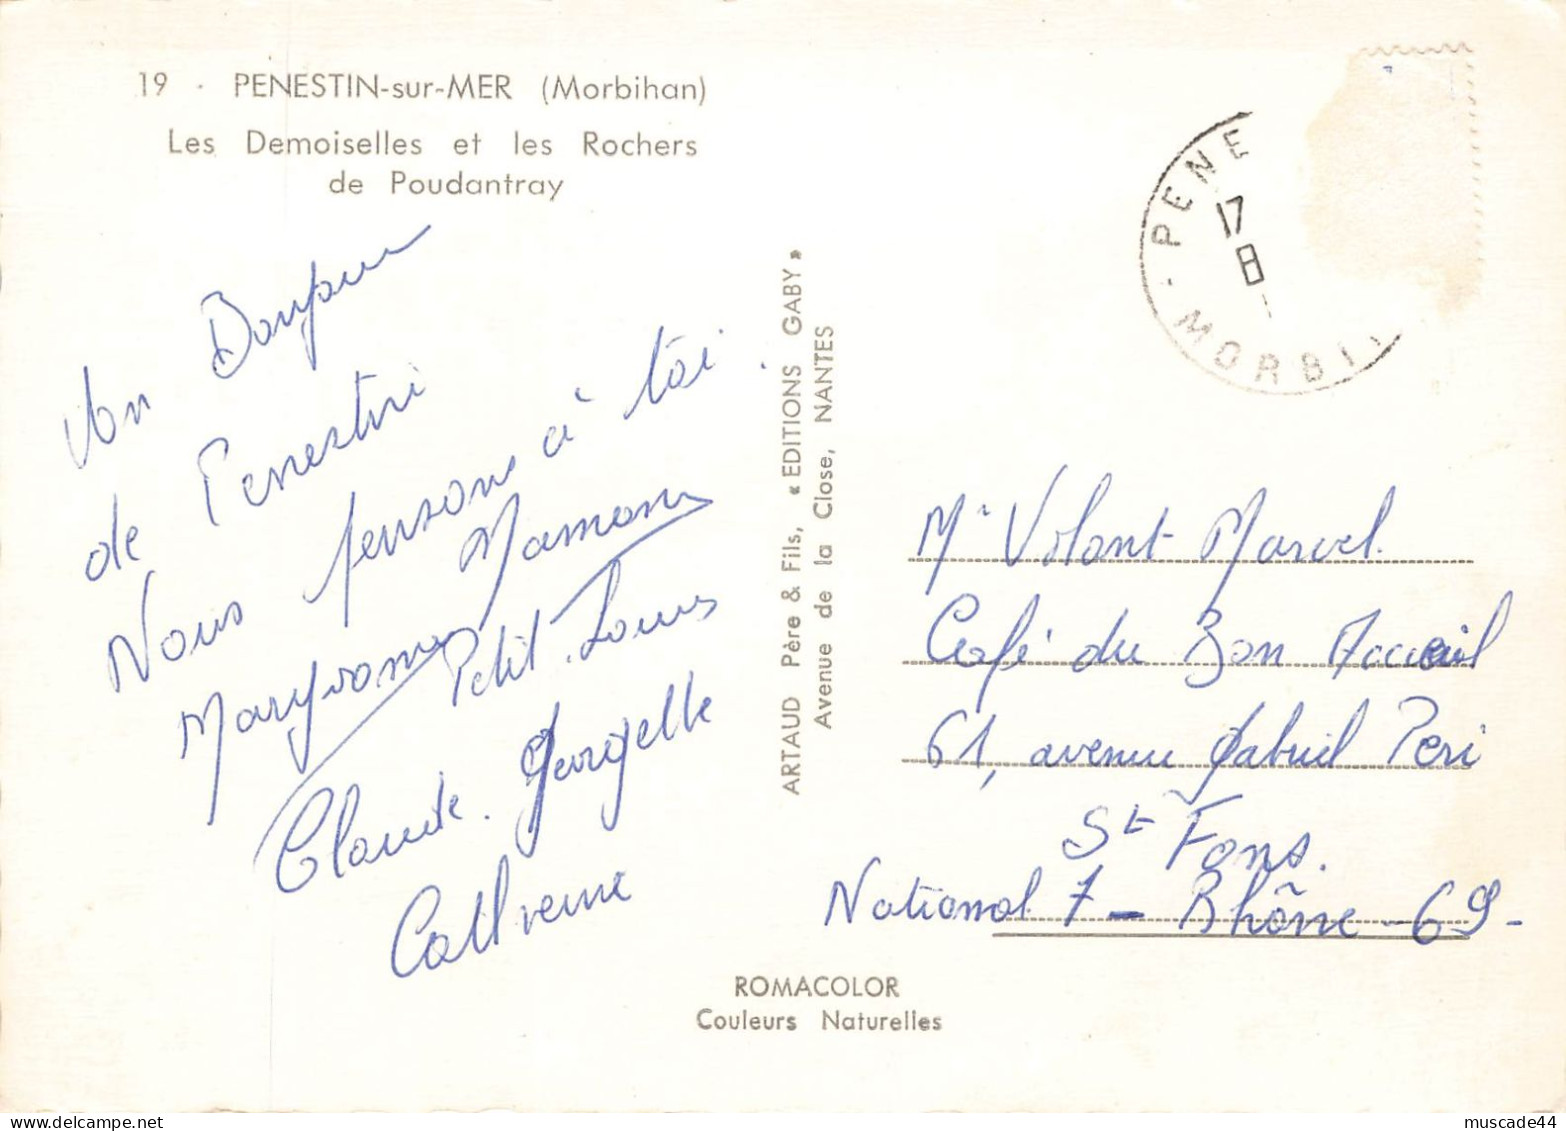 19 - PENESTIN-sur-MER (Morbihan)
Les Demoiselles et les Rochers
de Poudantray
Un Bonjour
de Penestin
Nous pensons à toi.
Maman
Maryvonne Petit Louis
Claude. Georgette
Catherine
ARTAUD Père & Fils, « EDITIONS GABY »
Avenue de la Close, NANTES
PENE
17
8
MORBI
Mr Volant Marcel
Café du Bon Accueil
61, avenue Gabriel Peri
St Fons.
National 7 - Rhône - 69 -
ROMACOLOR
Couleurs Naturelles
delcampe.net
muscade44